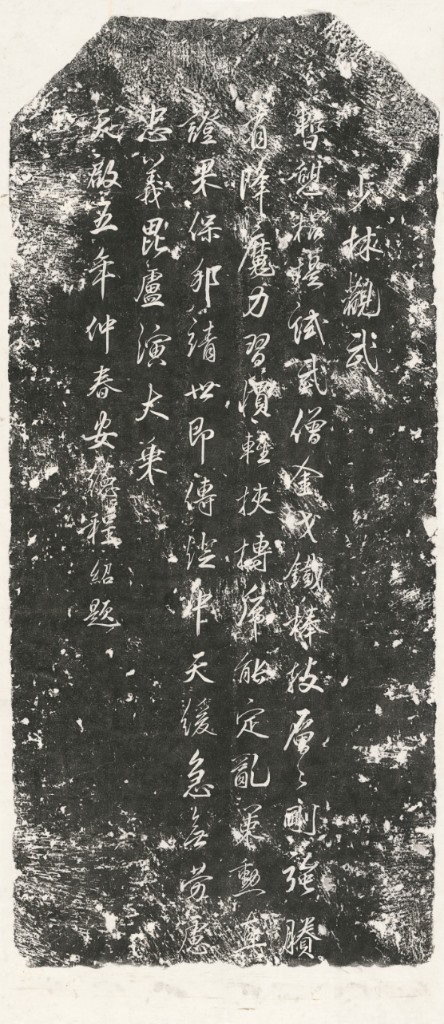 少林觀武
暫憩招提試武僧金戈鐵棒技層々剛強勝
有降魔力習慣輕挾摶虎能定亂策勳真
證果保邦靖世即傳燈中天緩急無勞慮
忠義毘盧演大乘
天啟五年仲春安德程紹題